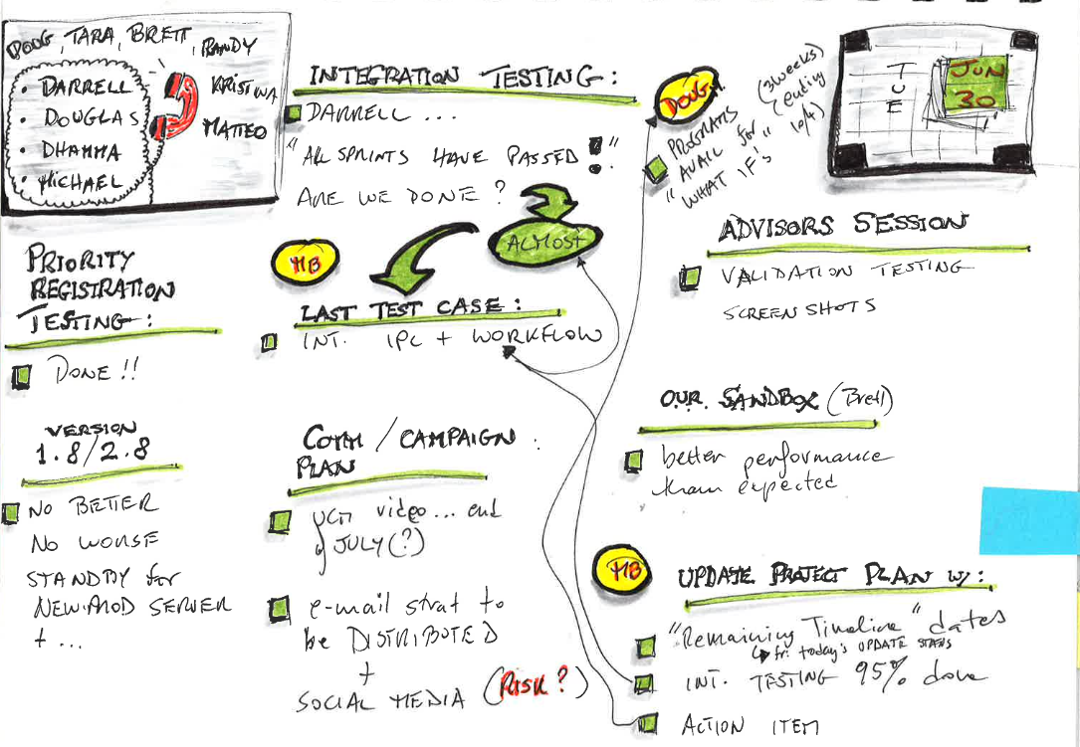 DOUG, TARA, BRETT, RANDY
• DARRELL
• DOUGLAS
• DHAMMA
• MICHAEL
KRISTINA
MATTEO
INTEGRATION TESTING:
DARRELL ...
"ALL SPRINTS HAVE PASSED!"
ARE WE DONE?
ALMOST
MB
LAST TEST CASE:
INT. IPC + WORKFLOW
DOUG
PROGRAMS (3 weeks)
"AVAIL for (ending
WHAT IF's" 10/4)
TUE
JUN
30
ADVISORS SESSION
VALIDATION TESTING
SCREEN SHOTS
PRIORITY
REGISTRATION
TESTING:
DONE!!
VERSION
1.8/2.8
NO BETTER
NO WORSE
STANDBY for
NEW PROD SERVER
+ ...
COMM/CAMPAIGN:
PLAN
video... end
JULY(?)
e-mail strat to
be DISTRIBUTED
+
SOCIAL MEDIA (RISK?)
OUR SANDBOX (Brett)
better performance
than expected
MB
UPDATE PROJECT PLAN W/:
"Remaining Timeline" dates
today's UPDATE
INT. TESTING 95% done
ACTION ITEM